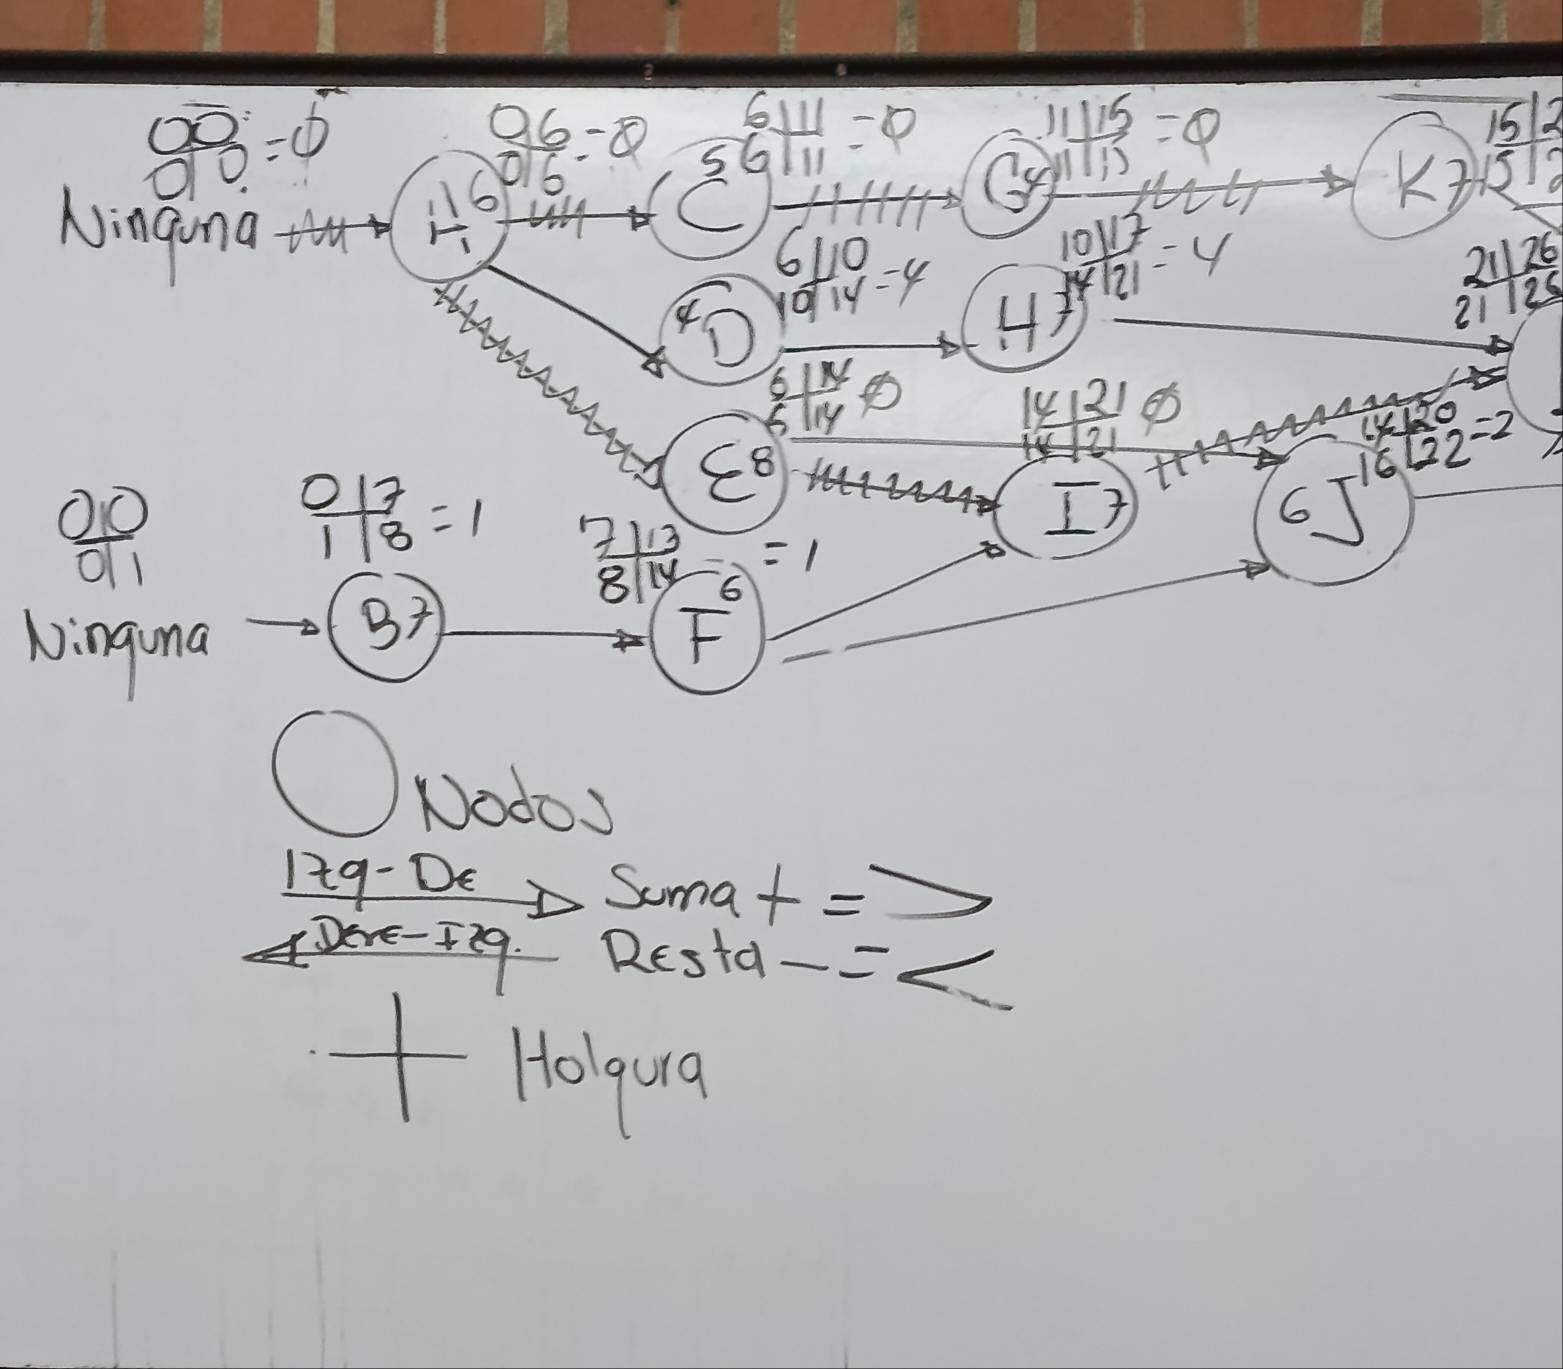 0|0 0|0 = ∅
0|6 0|6 - 0
6|11 6|11 = 0
11|15 11|15 = 0
15|2 15|2
Ninguna
6
5 C
G 4
K 7
6|10 10|14 - 4
10|17 14|21 - 4
21|26 21|26
4 D
H 7
6|14 6|14 ∅
14|21 14|21 ∅
14|20 16|22 = 2
E 8
I 7
6 J
0|0 0|1
0|7 1|8 = 1
7|13 8|14 = 1
Ninguna
B 7
F 6
Nodos
Izq-De Suma + = >
Dere-Izq. Resta - = <
+ Holgura